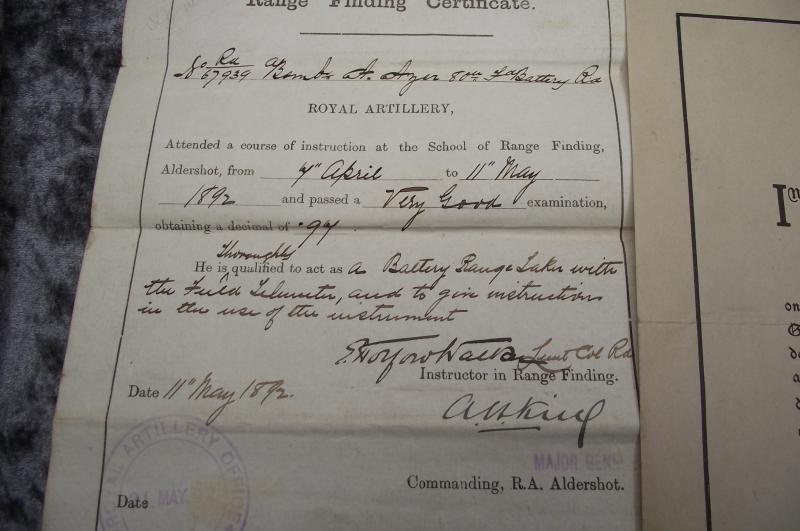 Range Finding Certificate.
No RA/67939 Bombr A. Ager 80th Fd Battery RA
ROYAL ARTILLERY,
Attended a course of instruction at the School of Range Finding,
Aldershot, from 7" April to 11" May
1892 and passed a Very Good examination,
obtaining a decimal of .97
thoroughly
He is qualified to act as a Battery Range Taker with
the Field Telemeter, and to give instructions
in the use of the instrument
Lieut Col RA
Instructor in Range Finding.
Date 11" May 1892.
A.H. King
MAJOR GENL
Commanding, R.A. Aldershot.
ROYAL ARTILLERY OFFICE
MAY
Date
on